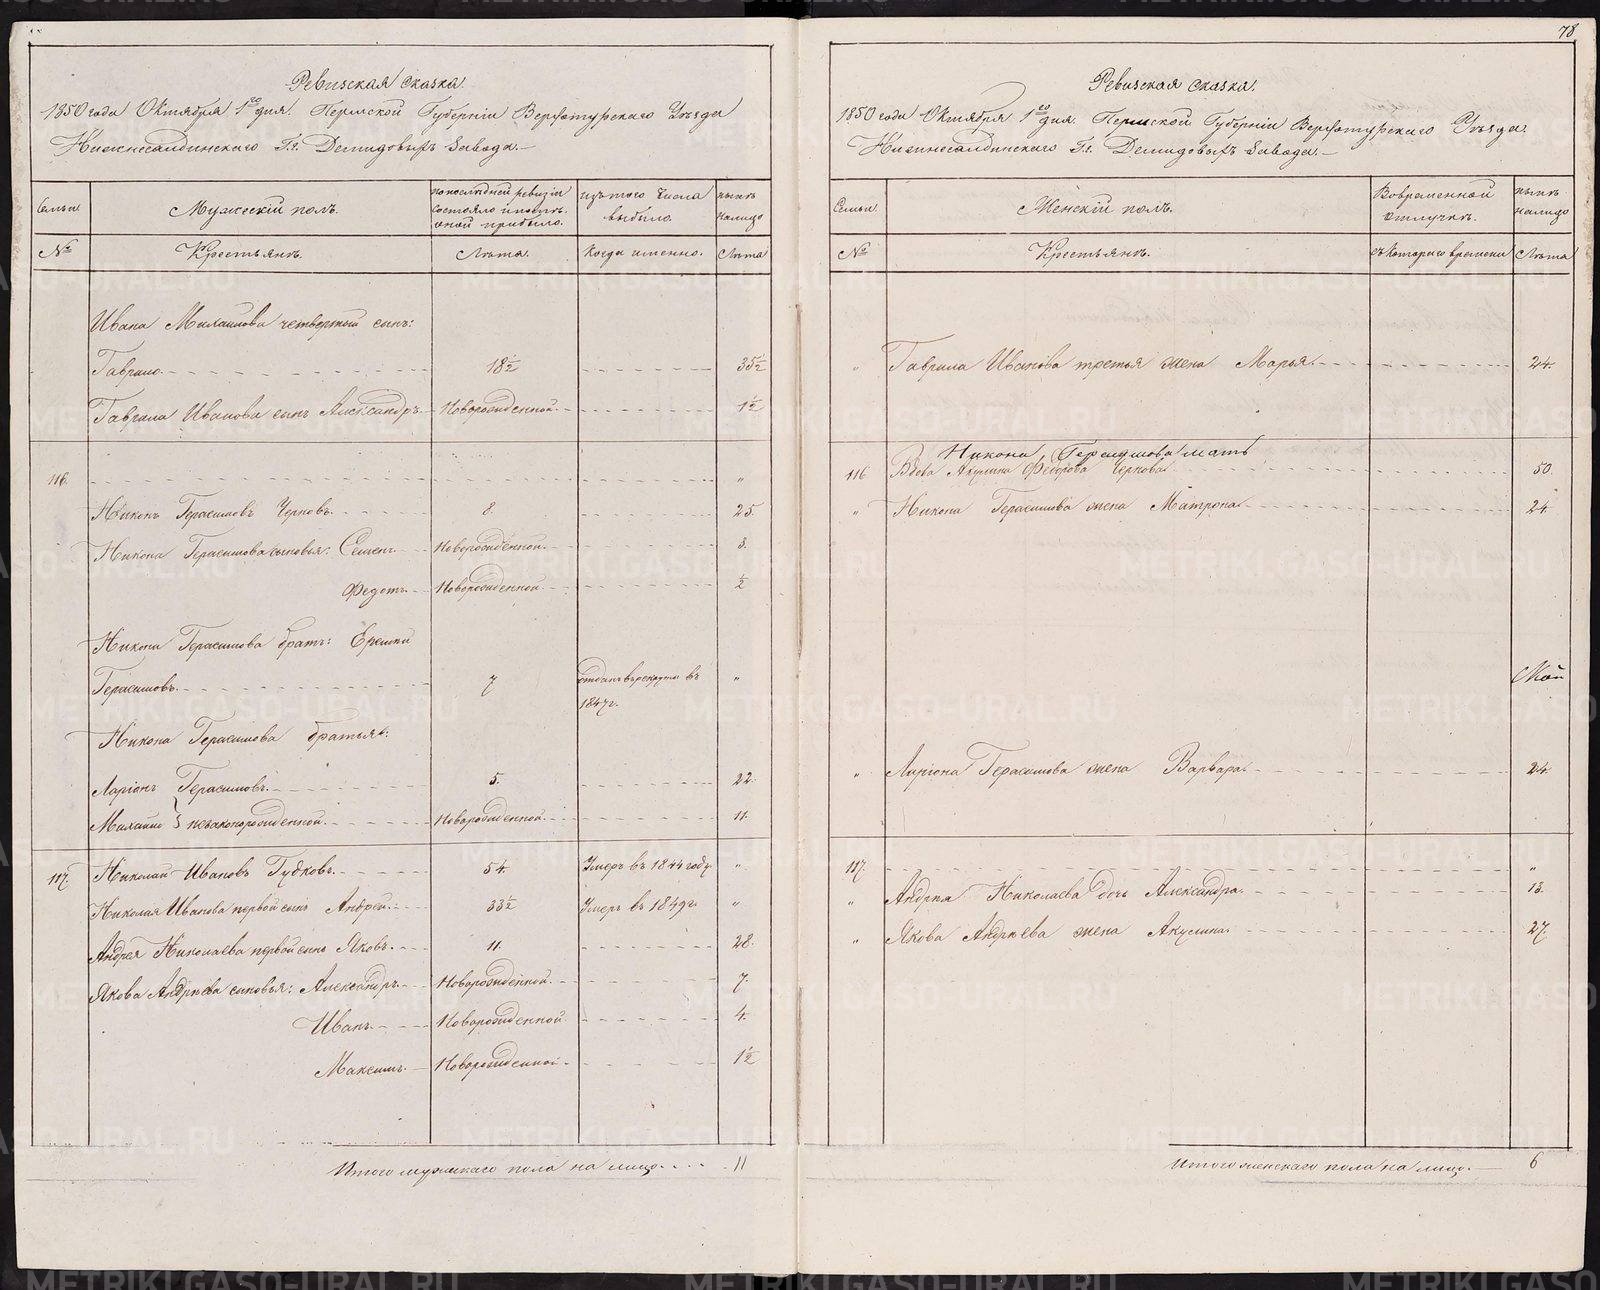 Ревизская сказка.
1850 года Октября 1го дня. Пермской Губерніи Верхотурскаго Уѣзда
Нижнесалдинскаго Гг. Демидовыхъ Завода.
Семьи
Мужескій полъ.
по последней ревизіи состояло и послѣ оной прибыло.
изъ того числа выбыло.
нынѣ на лицо
№
Крестьянъ.
Лѣта.
Когда именно.
Лѣта
Ивана Михайлова четвертый сынъ:
Гаврило. 18½ 35½
Гаврила Иванова сынъ Александръ. Новорожденной. 1½
116. "
Никонъ Герасимовъ Черновъ. 8. 25.
Никона Герасимова сыновья: Семенъ. Новорожденной. 3.
Федотъ. Новорожденной. ½
Никона Герасимова братъ:
Герасимовъ. 7 отданъ въ рекруты въ "
1847г.
Никона Герасимова братья:
Ларіонъ Герасимовъ. 5. 22.
Михайло незаконорожденной. Новорожденной. 11.
117. Николай Ивановъ Гудковъ. 54. Умеръ въ 1844 году. "
Николая Иванова первой сынъ Андрей. 33½ Умеръ въ 1849г. "
Андрея Николаева первой сынъ Яковъ. 11. 28.
Якова Андрѣева сыновья: Александръ. Новорожденной. 7.
Иванъ. Новорожденной. 4.
Максимъ. Новорожденной. 1½
Итого мужскаго пола на лицо. 11
78
Ревизская сказка.
1850 года Октября 1го дня. Пермской Губерніи Верхотурскаго Уѣзда
Нижнесалдинскаго Гг. Демидовыхъ Завода.
Семьи.
Женскій полъ.
Во временной отлучкѣ.
нынѣ на лицо
№
Крестьянъ.
съ котораго времени
Лѣта
" Гаврила Иванова третья жена Марья. 24.
Никона Герасимова мать
116. Вдова Акулина Федорова Чернова. 50.
" Никона Герасимова жена Матрона. 24.
" Ларіона Герасимова жена Варвара. 24.
117. "
" Андрея Николаева дочь Александра. 13.
" Якова Андрѣева жена Акулина. 27.
Итого женскаго пола на лицо. 6
METRIKI.GASO-URAL.RU